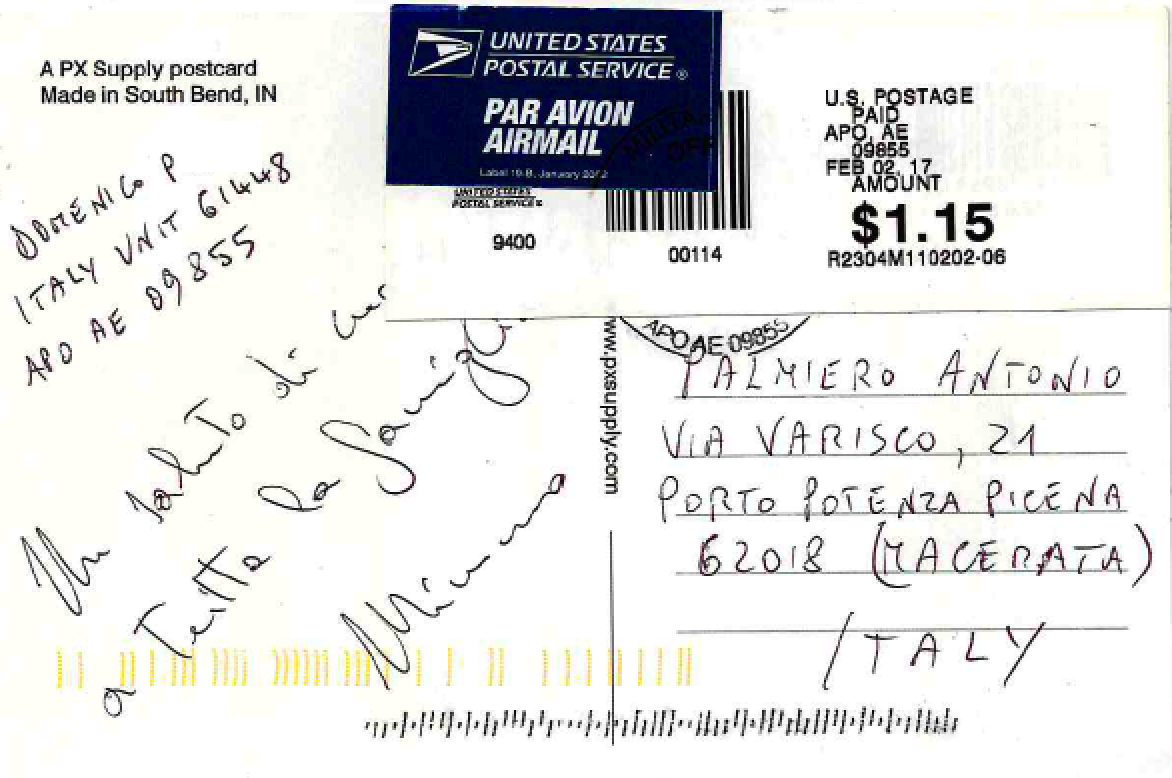 A PX Supply postcard
Made in South Bend, IN
UNITED STATES
POSTAL SERVICE®
PAR AVION
AIRMAIL
Label 19-B, January 2012
UNITED STATES
POSTAL SERVICE®
9400
00114
U.S. POSTAGE
PAID
APO, AE
09855
FEB 02, 17
AMOUNT
$1.15
R2304M110202-06
APO AE 09855
DOMENICO P
ITALY UNIT 61448
APO AE 09855
Un saluto di
a tutta la
Mimmo
www.pxsupply.com
PALMIERO ANTONIO
VIA VARISCO, 21
PORTO POTENZA PICENA
62018 (MACERATA)
ITALY